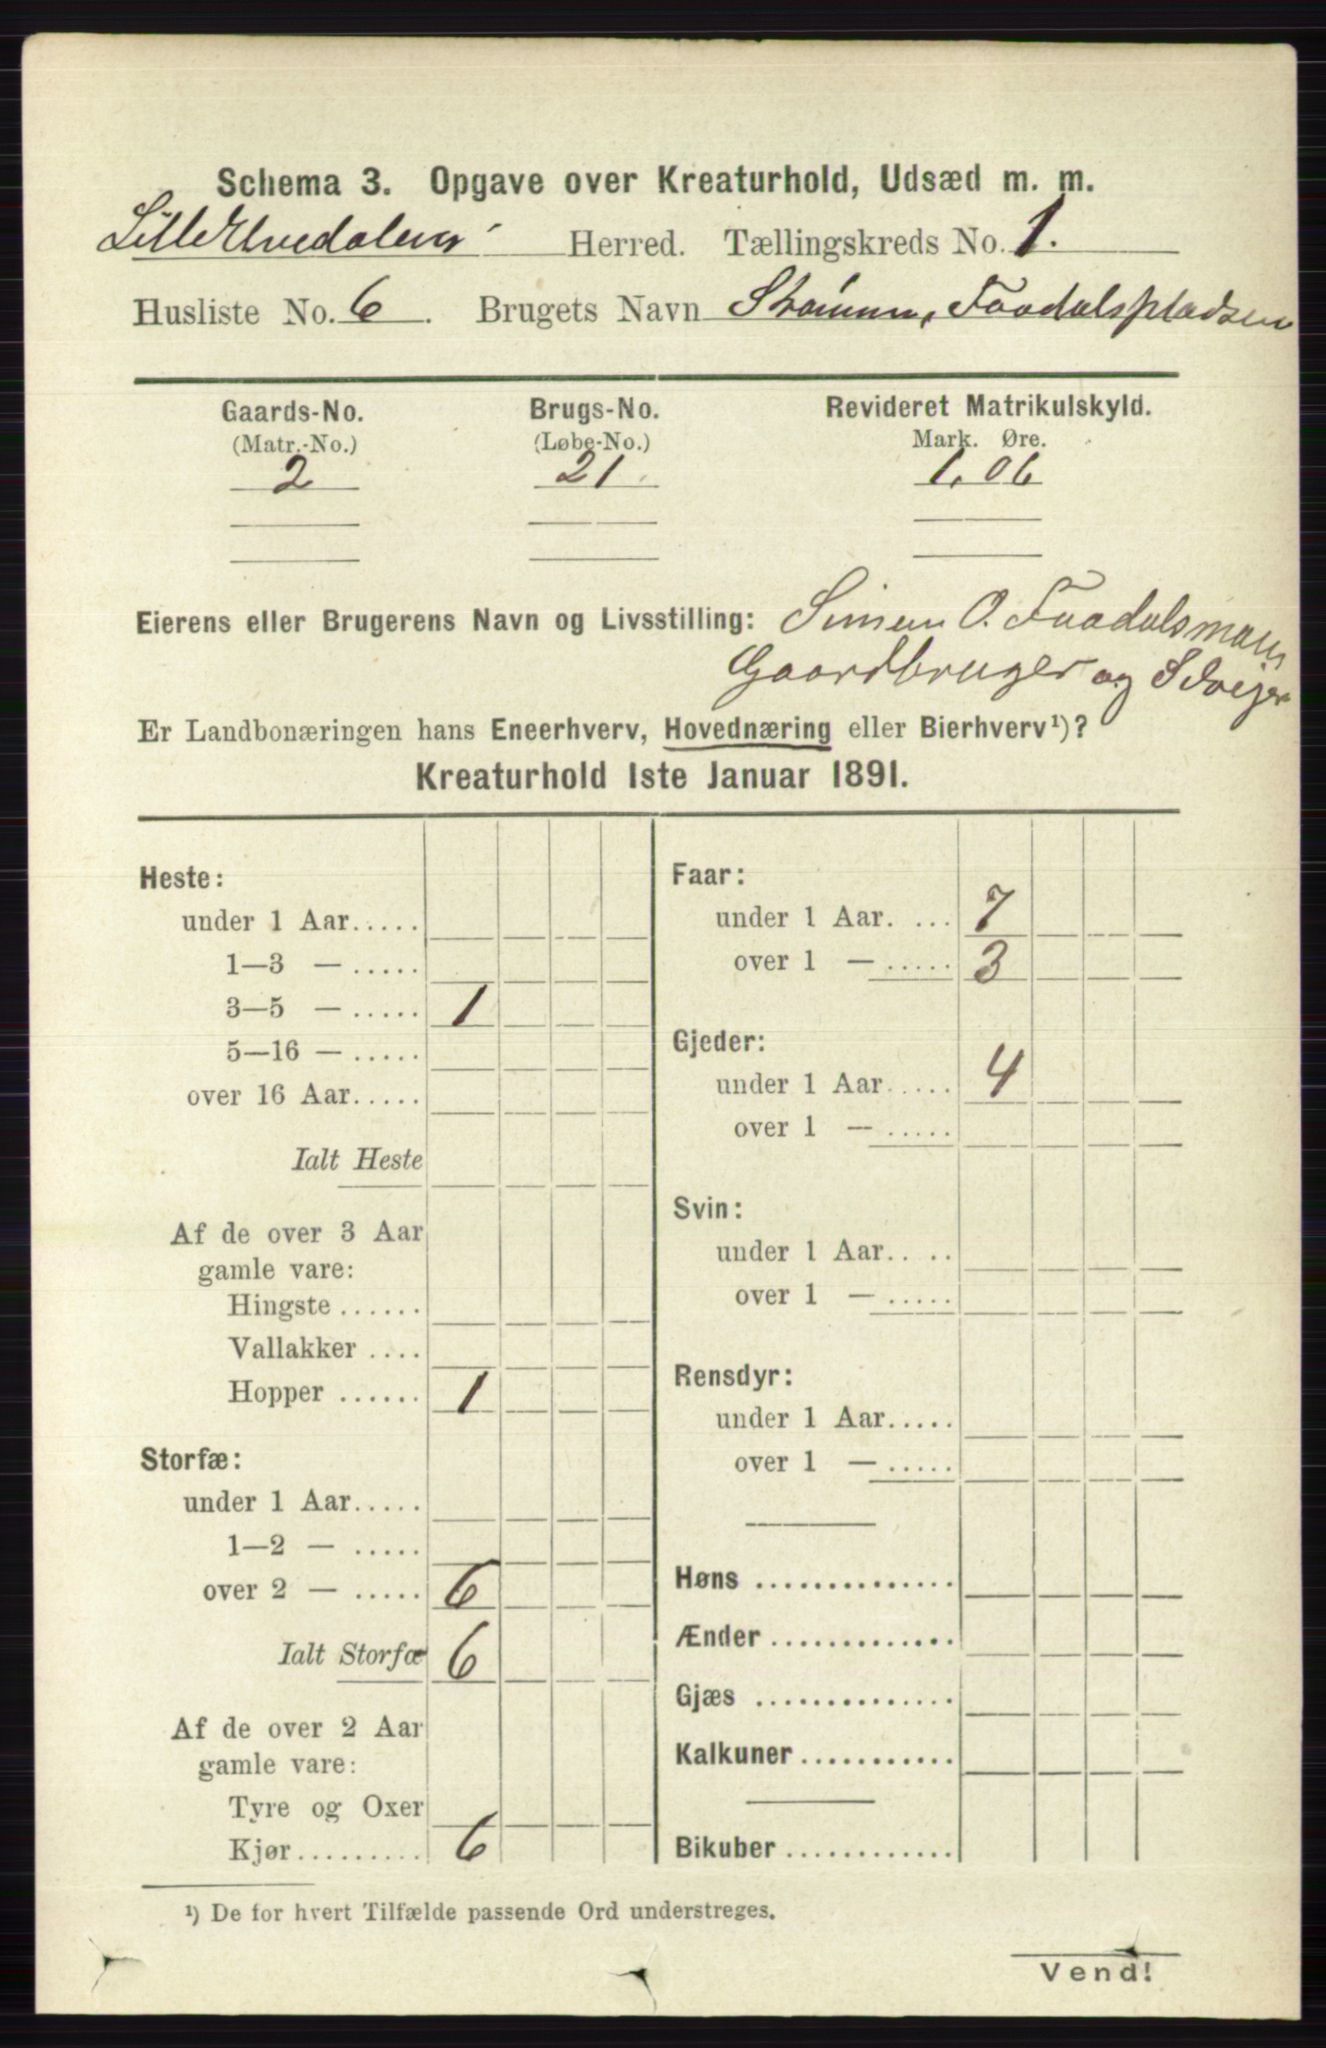 Schema 3. Opgave over Kreaturhold, Udsæd m. m.
LilleElvedalens Herred. Tællingskreds No. 1.
Husliste No. 6. Brugets Navn Strømm, Faadalspladsen
Gaards-No. Brugs-No. Revideret Matrikulskyld.
(Matr.-No.) (Løbe-No.) Mark. Øre.
2 21. 1.06
Eierens eller Brugerens Navn og Livsstilling: Simen O. Faadalsmoen
Gaardbruger og Selveier
Er Landbonæringen hans Eneerhverv, Hovednæring eller Bierhverv¹)?
Kreaturhold 1ste Januar 1891.
Heste:
under 1 Aar.....
1—3 — .....
3—5 — ..... 1
5—16 — .....
over 16 Aar.....
Ialt Heste
Af de over 3 Aar
gamle vare:
Hingste ......
Vallakker ....
Hopper ...... 1
Storfæ:
under 1 Aar.....
1—2 — .....
over 2 — ..... 6
Ialt Storfæ 6
Af de over 2 Aar
gamle vare:
Tyre og Oxer
Kjør......... 6
Faar:
under 1 Aar. ... 7
over 1 — ..... 3
Gjeder:
under 1 Aar..... 4
over 1 — .....
Svin:
under 1 Aar.....
over 1 — .....
Rensdyr:
under 1 Aar.....
over 1 — .....
Høns ..............
Ænder .............
Gjæs ..............
Kalkuner ...........
Bikuber ............
¹) De for hvert Tilfælde passende Ord understreges.
Vend!